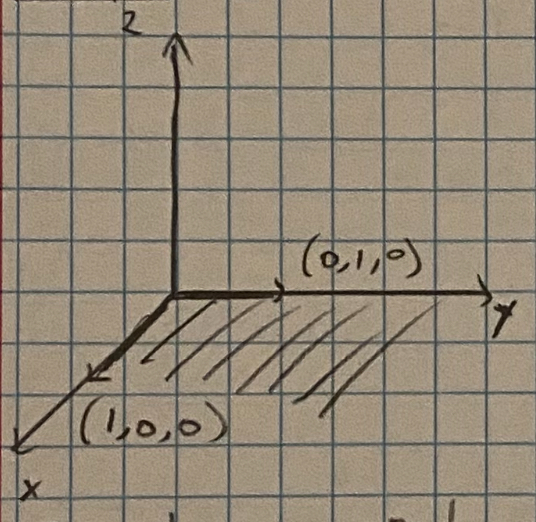 z
(0,1,0)
y
(1,0,0)
x